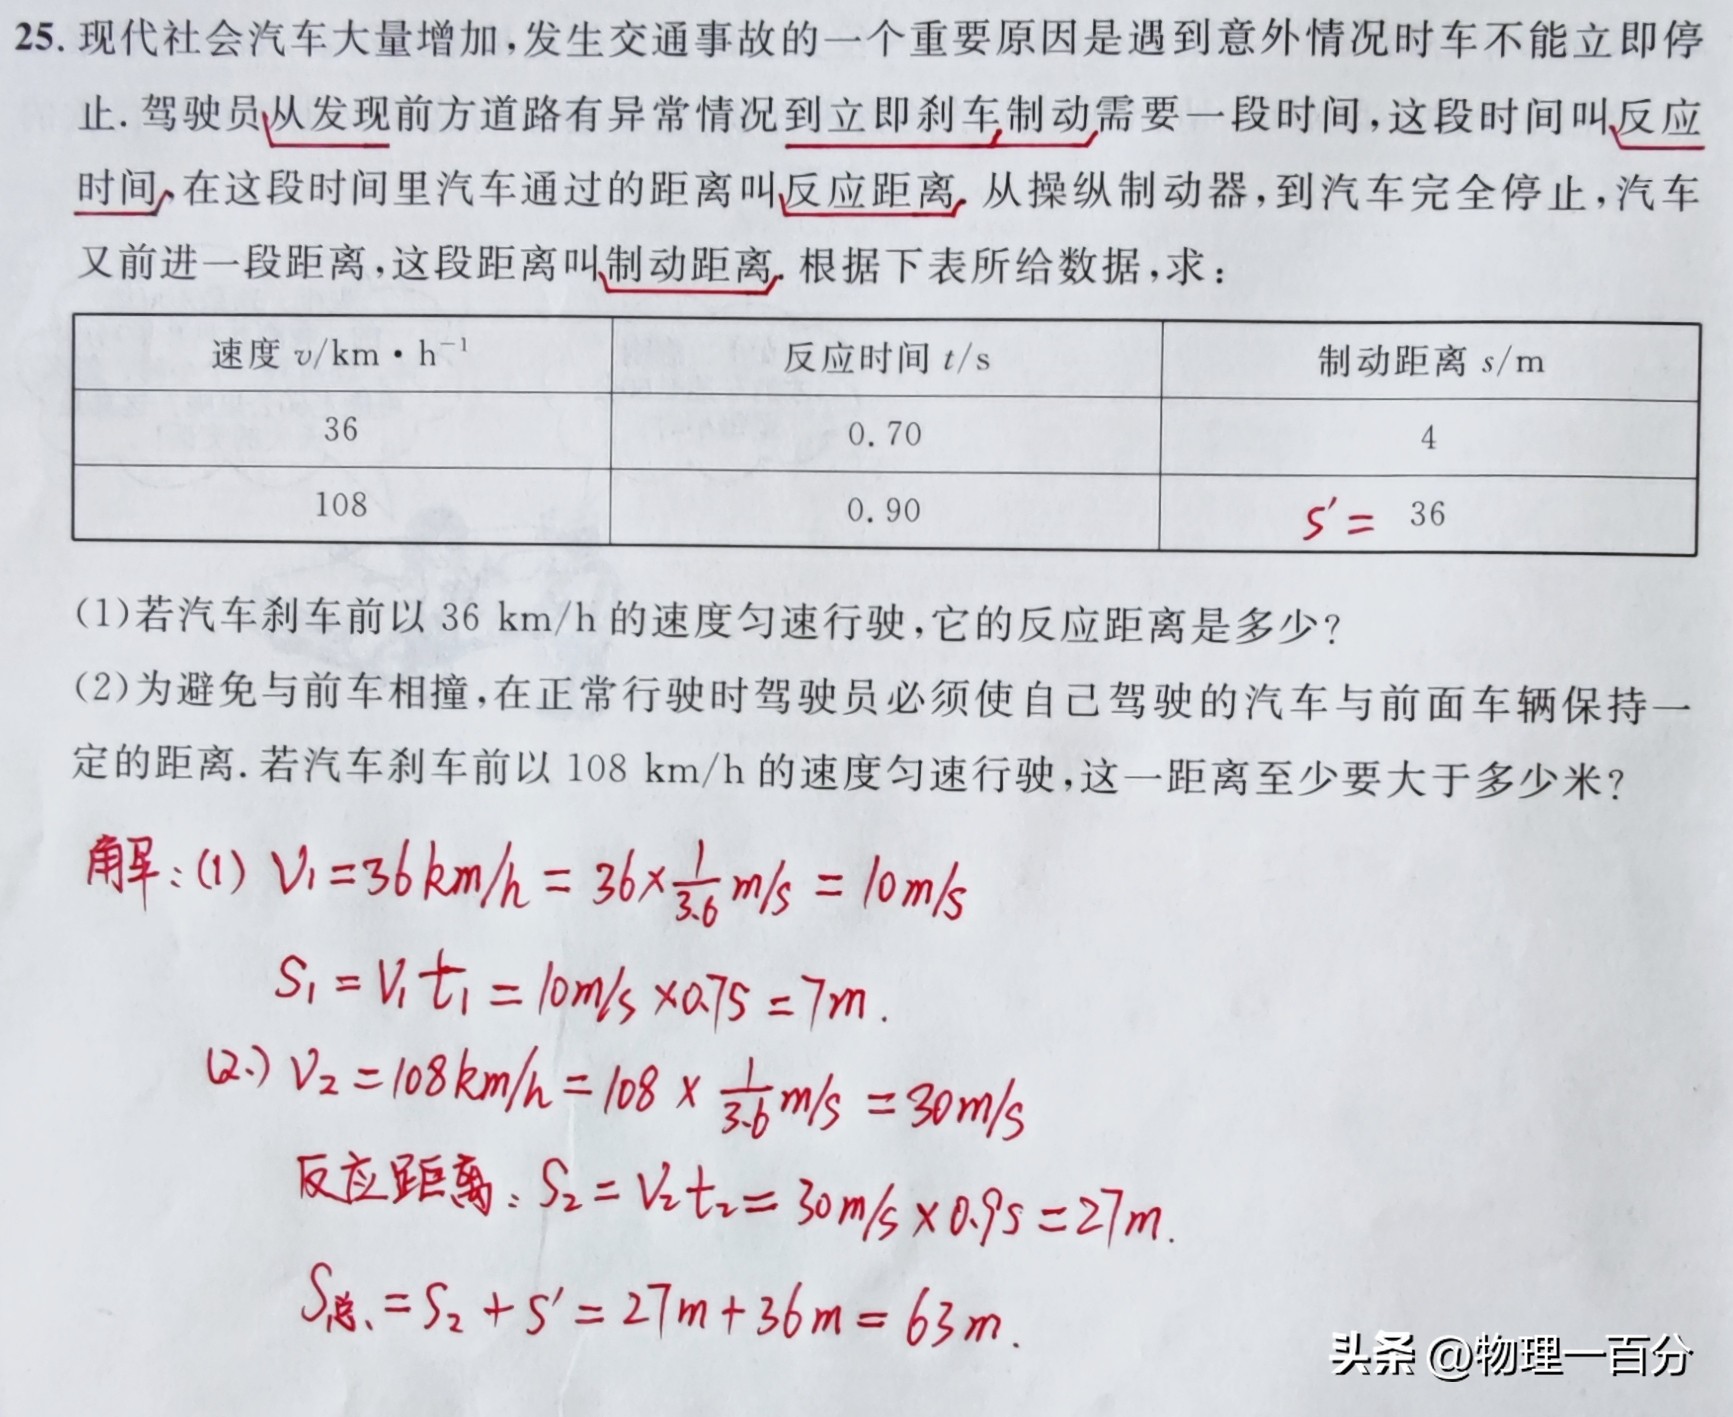 25. 现代社会汽车大量增加,发生交通事故的一个重要原因是遇到意外情况时车不能立即停
止. 驾驶员从发现前方道路有异常情况到立即刹车制动需要一段时间,这段时间叫反应
时间,在这段时间里汽车通过的距离叫反应距离. 从操纵制动器,到汽车完全停止,汽车
又前进一段距离,这段距离叫制动距离. 根据下表所给数据,求:
速度 v/km·h⁻¹ 反应时间 t/s 制动距离 s/m
36 0.70 4
108 0.90 S′= 36
(1)若汽车刹车前以 36 km/h 的速度匀速行驶,它的反应距离是多少?
(2)为避免与前车相撞,在正常行驶时驾驶员必须使自己驾驶的汽车与前面车辆保持一
定的距离. 若汽车刹车前以 108 km/h 的速度匀速行驶,这一距离至少要大于多少米?
解:(1) V₁=36km/h=36×1/3.6 m/s=10m/s
S₁=V₁t₁=10m/s×0.7s=7m.
(2.) V₂=108km/h=108×1/3.6 m/s=30m/s
反应距离:S₂=V₂t₂=30m/s×0.9s=27m.
S总=S₂+S′=27m+36m=63m.
头条 @物理一百分